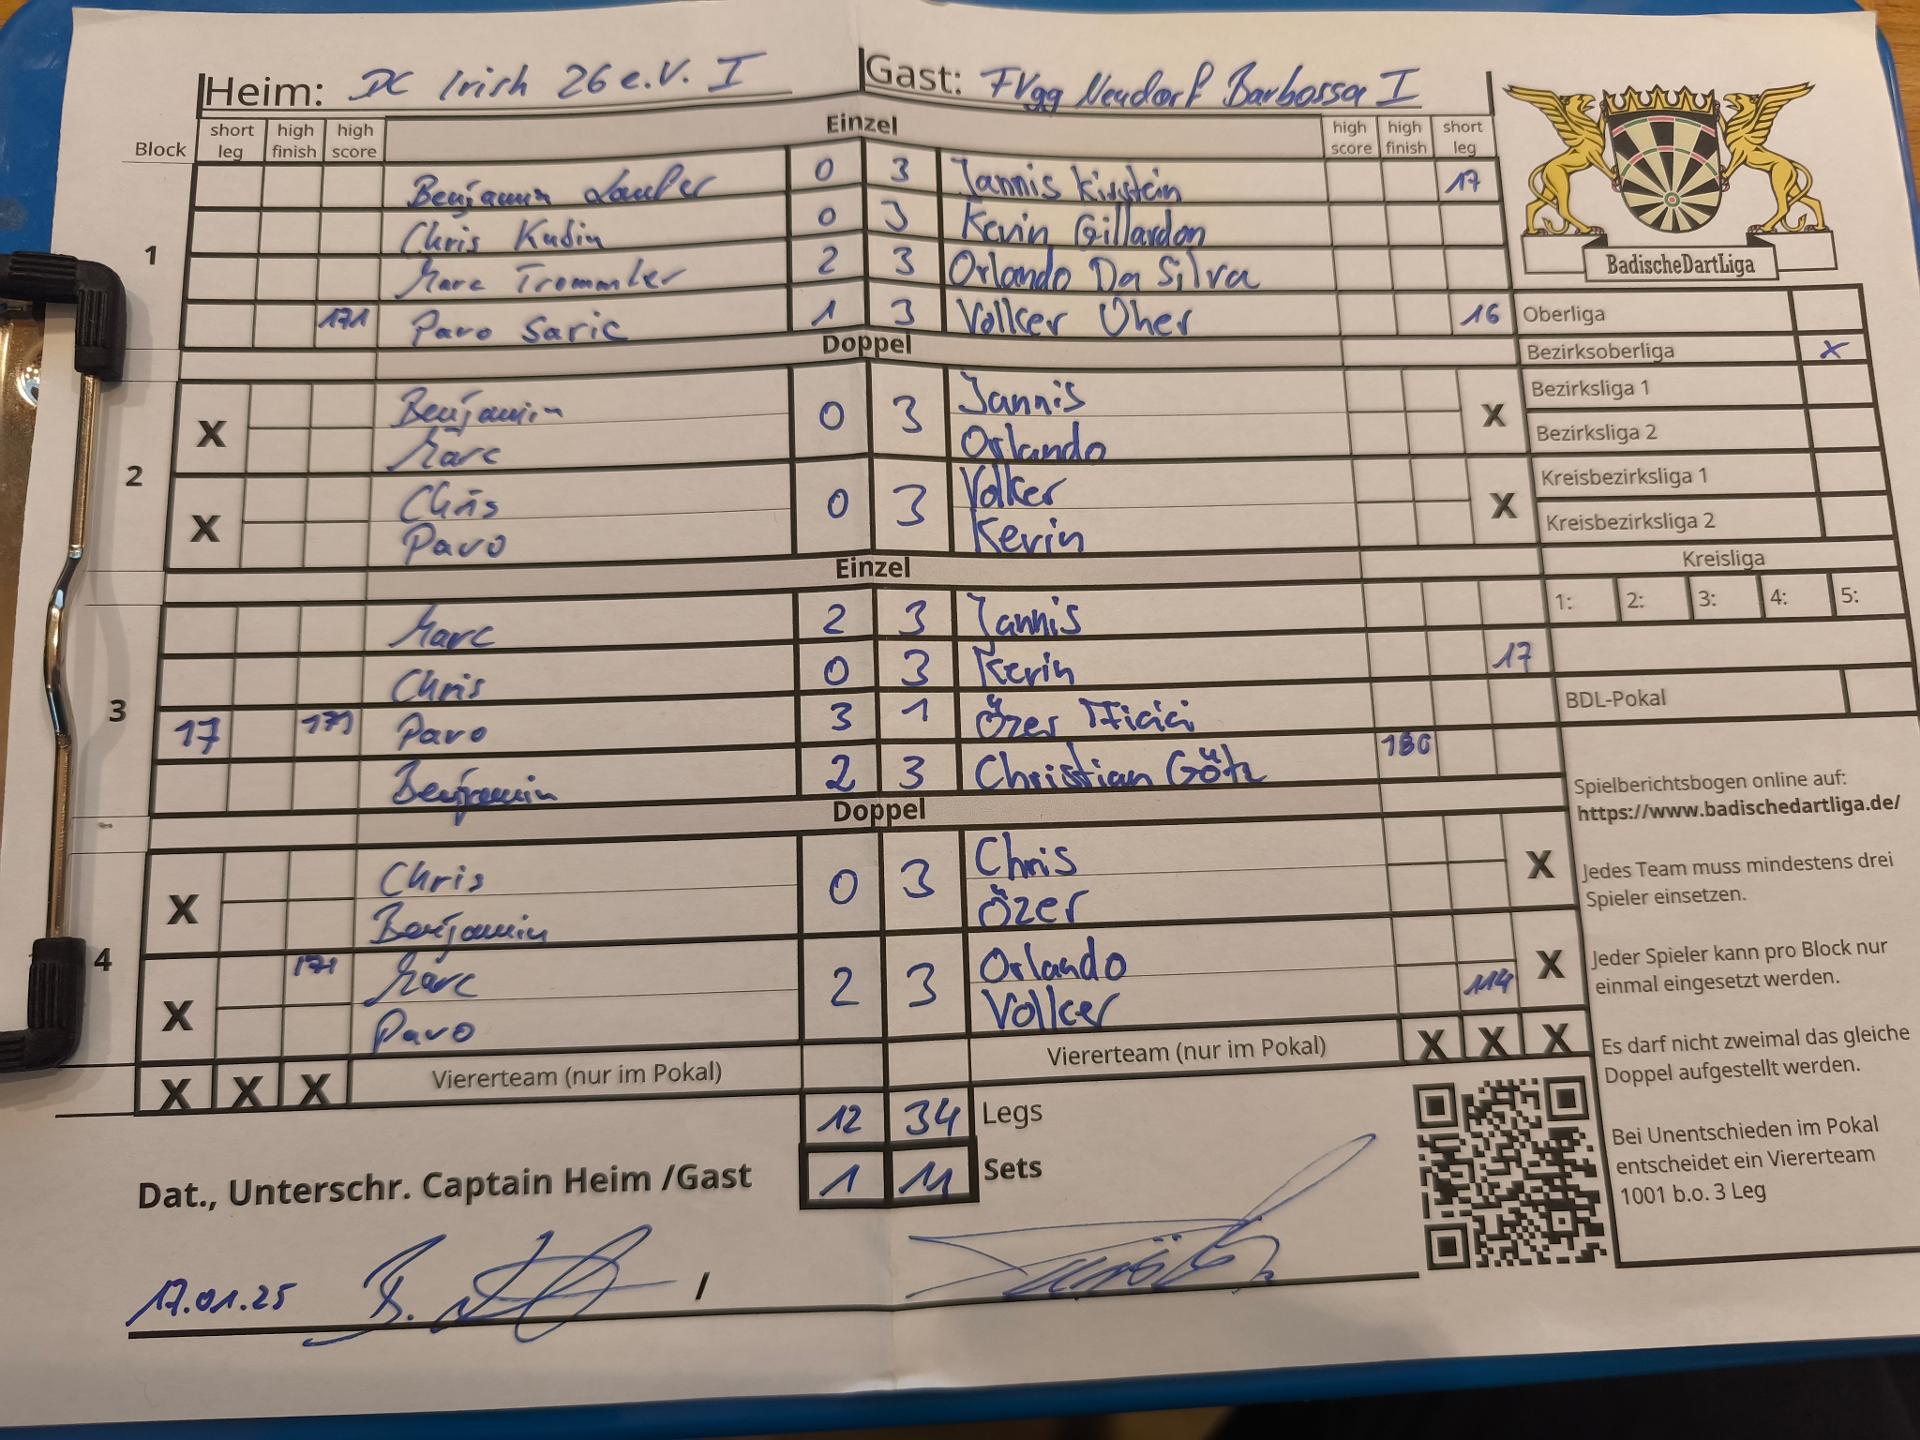 Heim: DC Irish 26 e.V. I Gast: FVgg Neudorf Barbossa I
Block short leg high finish high score Einzel high score high finish short leg
1
Benjamin Laufer 0 3 Jannis Kirstein 17
Chris Kudin 0 3 Kevin Gillardon
Marc Trommler 2 3 Orlando Da Silva
171 Pavo Saric 1 3 Volker Uher 16
Doppel
2
X Benjamin 0 3 Jannis X
Marc Orlando
X Chris 0 3 Volker X
Pavo Kevin
Einzel
3
Marc 2 3 Jannis
Chris 0 3 Kevin 17
17 171 Pavo 3 1 Özer
Benjamin 2 3 Christian Götz 180
Doppel
4
X Chris 0 3 Chris X
Benjamin Özer
X 171 Marc 2 3 Orlando X
Pavo Volker 114
X X X Viererteam (nur im Pokal) Viererteam (nur im Pokal) X X X
12 34 Legs
1 11 Sets
Dat., Unterschr. Captain Heim /Gast
17.01.25 /
BadischeDartLiga
Oberliga
Bezirksoberliga x
Bezirksliga 1
Bezirksliga 2
Kreisbezirksliga 1
Kreisbezirksliga 2
Kreisliga
1: 2: 3: 4: 5:
BDL-Pokal
Spielberichtsbogen online auf:
https://www.badischedartliga.de/
Jedes Team muss mindestens drei
Spieler einsetzen.
Jeder Spieler kann pro Block nur
einmal eingesetzt werden.
Es darf nicht zweimal das gleiche
Doppel aufgestellt werden.
Bei Unentschieden im Pokal
entscheidet ein Viererteam
1001 b.o. 3 Leg